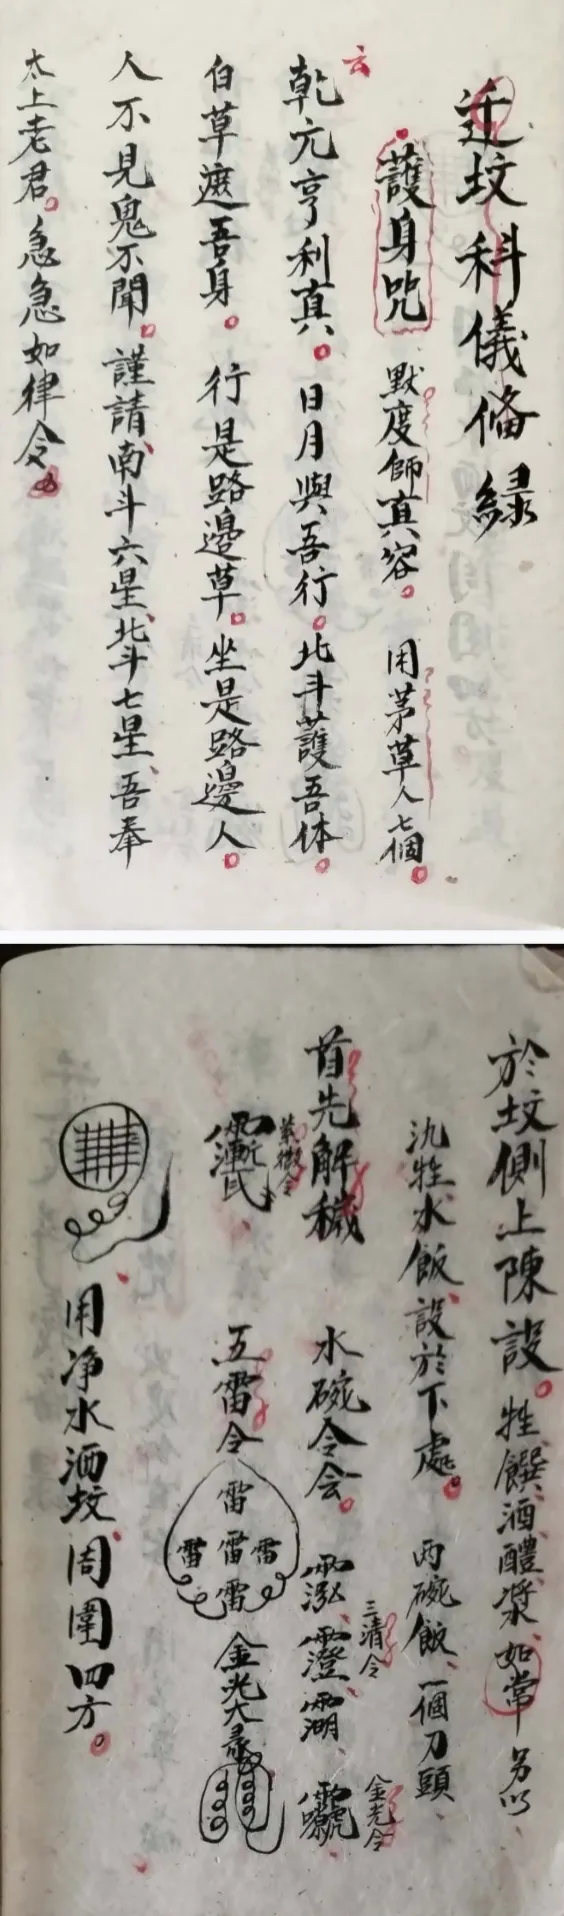 迁坟科儀俻錄
護身咒 默度師真容。 用茅草人七個。
云
乾元亨利真。日月與吾行。北斗護吾体。
白草遮吾身。行是路邊草。坐是路邊人。
人不見鬼不聞。謹請南斗六星、北斗七星、吾奉
太上老君。急急如律令。
於坟側上陳設。牲饌、酒醴、漿、如常 另以
牲水飯、設於下處。 两碗飯、一個刀頭、
首先解穢 水碗令会。
三清令
金光令
紫微令
五雷令 雷 雷 雷 雷 雷 金光大
用净水洒坟、周圍四方。